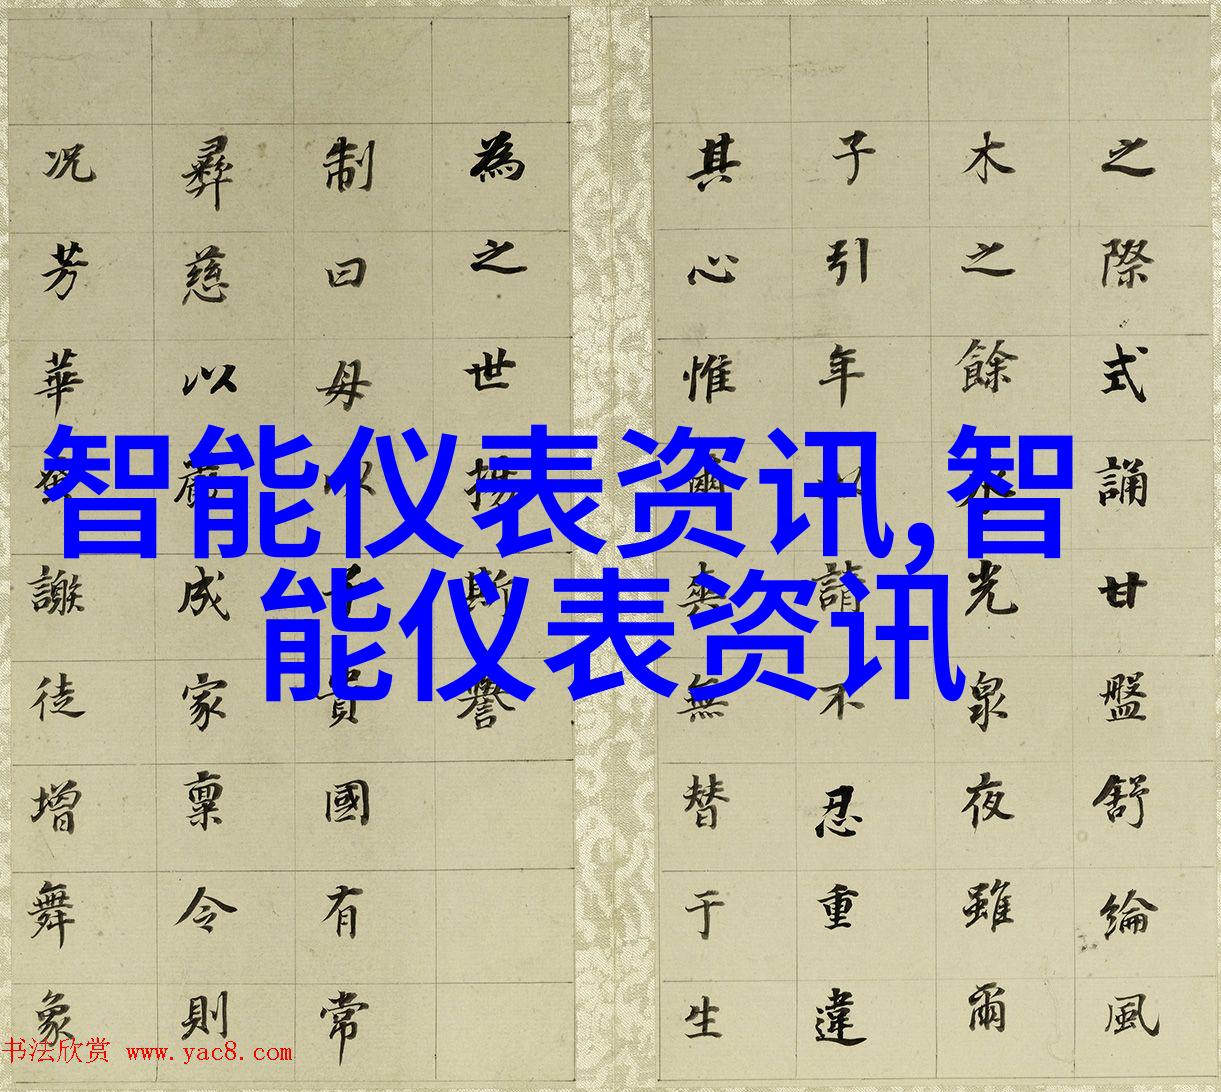 智能仪表资讯,智
能仪表资讯
之際式誦甘盤舒綸風
木之餘永光泉夜雖爾
子引年以請不忍重違
其心惟爾奭無替于生
為之世揚斯譽
制曰母以子貴國有常
彝慈以成家稟令則
况芳華謝徒增舞象
书法欣赏 www.yac8.com